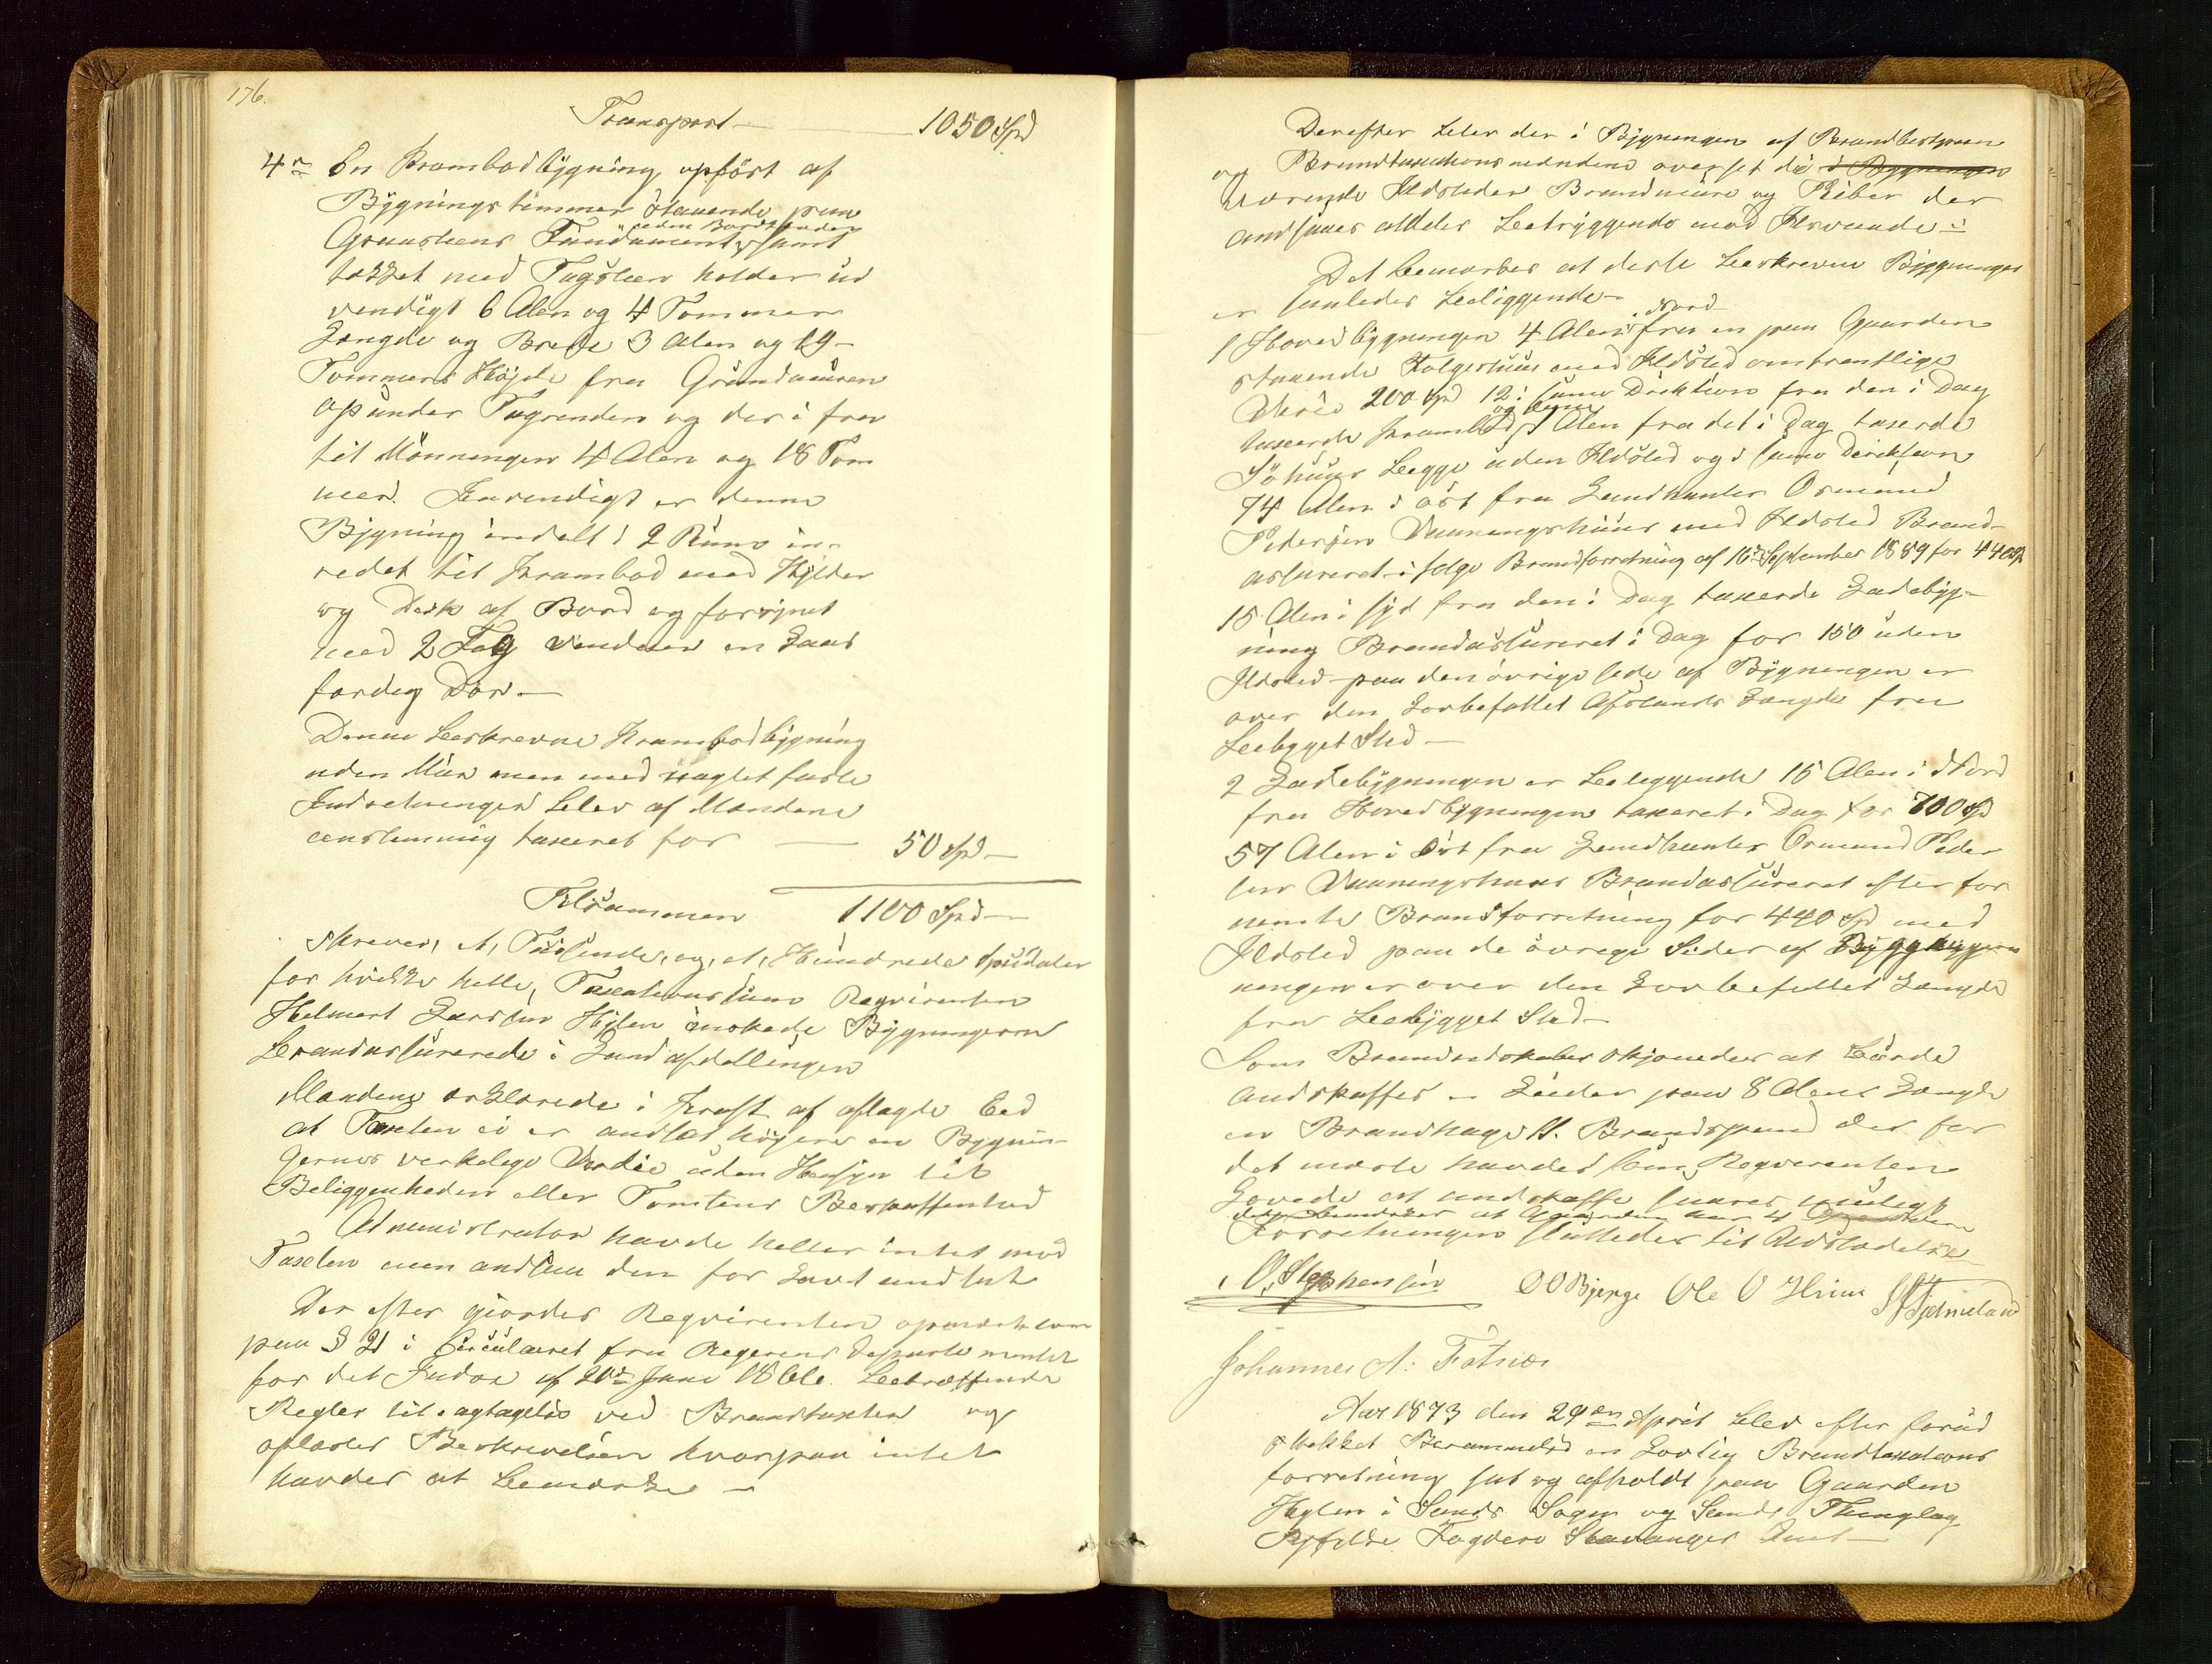 176.
Transport 1050 Spd
4de En Krambodbygning opført af
Bygningstimmer staaende paa
Graastens Fundament, uden Bordklæder samt
tækket med Tagsteen holder ud
vendigt 6 Alen og 4 Tommer
Længde og Brede 3 Alen og 19
Tommers Høyde fra Grundmuren
op under Tagrenden og der i fra
til Mønningen 4 Alen og 18 Tom
mer. Indvendigt er denne
Bygning inddelt i 2 Rum ind
redet til Krambod med Hylder
og Disk af Bord og forsynet
med 2 Fag Vinduer en Laas
færdig Dør.
Denne beskrevne Krambodbygning
uden Muur men med naglet faste
Indretninger blev af Mændene
eenstemmig taxeret for 50 Spd
Tilsammen 1100 Spd
skriver, et, Tusinde, og, et, Hundrede Spesidaler
for hvilke hele, Taxationssum Reqvirenten
Helmert Larsen Hylen ønskede Bygningerne
brandassurerede i Landafdelingen
Mændene erklærede i Kraft af aflagde Eed
at Taxten ei er andsat høyere en Bygnin
gernes verkelige Værdie uden Hensyn til
Beliggenheden eller Tomtens Beskaffenhed
Administrator havde heller intet mod
Taxten men andsaa den for Lavt andsat
Der efter giordes Reqvirenten opmærksom
paa § 21 i Circulæret fra Regjerens Departementet
for det Indre af 20de Juni 1866. betræffende
Regler til agtagelse ved Brandtaxter og
oplæstes Beskrivelsen hvorpaa intet
havdes at bemærke
Derefter blev der i Bygningen af Brandbestyreren
og Brandtaxtionsmændene overset de i Bygningen
værende Ildsteder Brandmure og Piber der
andsaaes alldeles betryggende mod Ilsvaade
Det bemærkes at deste beskrevne Bygninger
er saaledes beliggende
1 Hovedbygningen 4 Alen i Nord fra en paa Gaarden
staaende Folgehuus med Ildsted omtrentlige
Værdie 200 Spd 12 i samme Direktion fra den i Dag
taxerede Krambod og denne 1 Alen fra det i Dag taxerede
Søhuus begge uden Ildsted og i samme Direktion
74 Alen i øst fra Landhandler Osmund
Pedersen Vaaningshuus med Ildsted Brand
assureret i følge Brandforretning af 16de September 1859 for 440 Spd
15 Alen i syd fra den i Dag taxerede Ladebyg
ning Brandassureret i Dag for 150 uden
Ildsted paa den øvrige side af Bygningen er
over den Lovbefallet Afstands Længde fra
bebygget Sted
2 Ladebygningen er beleggende 15 Alen i Nord
fra Hovedbygningen taxeret i Dag for 700 Spd
57 Alen i Øst fra Landhandler Osmund Peder
sen Vaaningshuus Brandassureret efter for
nemte Brandforretning for 440 Spd med
Ildsted paa de øvrige Sider af
ningen er over den Lovbefallet Længde
fra bebygget Sted
Som Brandredskaber skjønnedes at burde
andskaffes en Leider paa 8 Alens Længde
en Brandhage 1. Brandspand der for
det meste havdes som Reqverenten
Lovede at andskaffe snarest mulegt
Forretningen sluttedes til Udstædelse
O. Stephensen O O Bjerge Ole O Hiim
Johannes A: Fatnes
Aar 1873 den 29de April blev efter forud
skekket Berammelse en Lovlig Brandtaxations
forretning sat og afholdt paa Gaarden
Hylen i Sands Sogn og Sands Thinglag
Ryfylke Fogderi Stavanger Amt